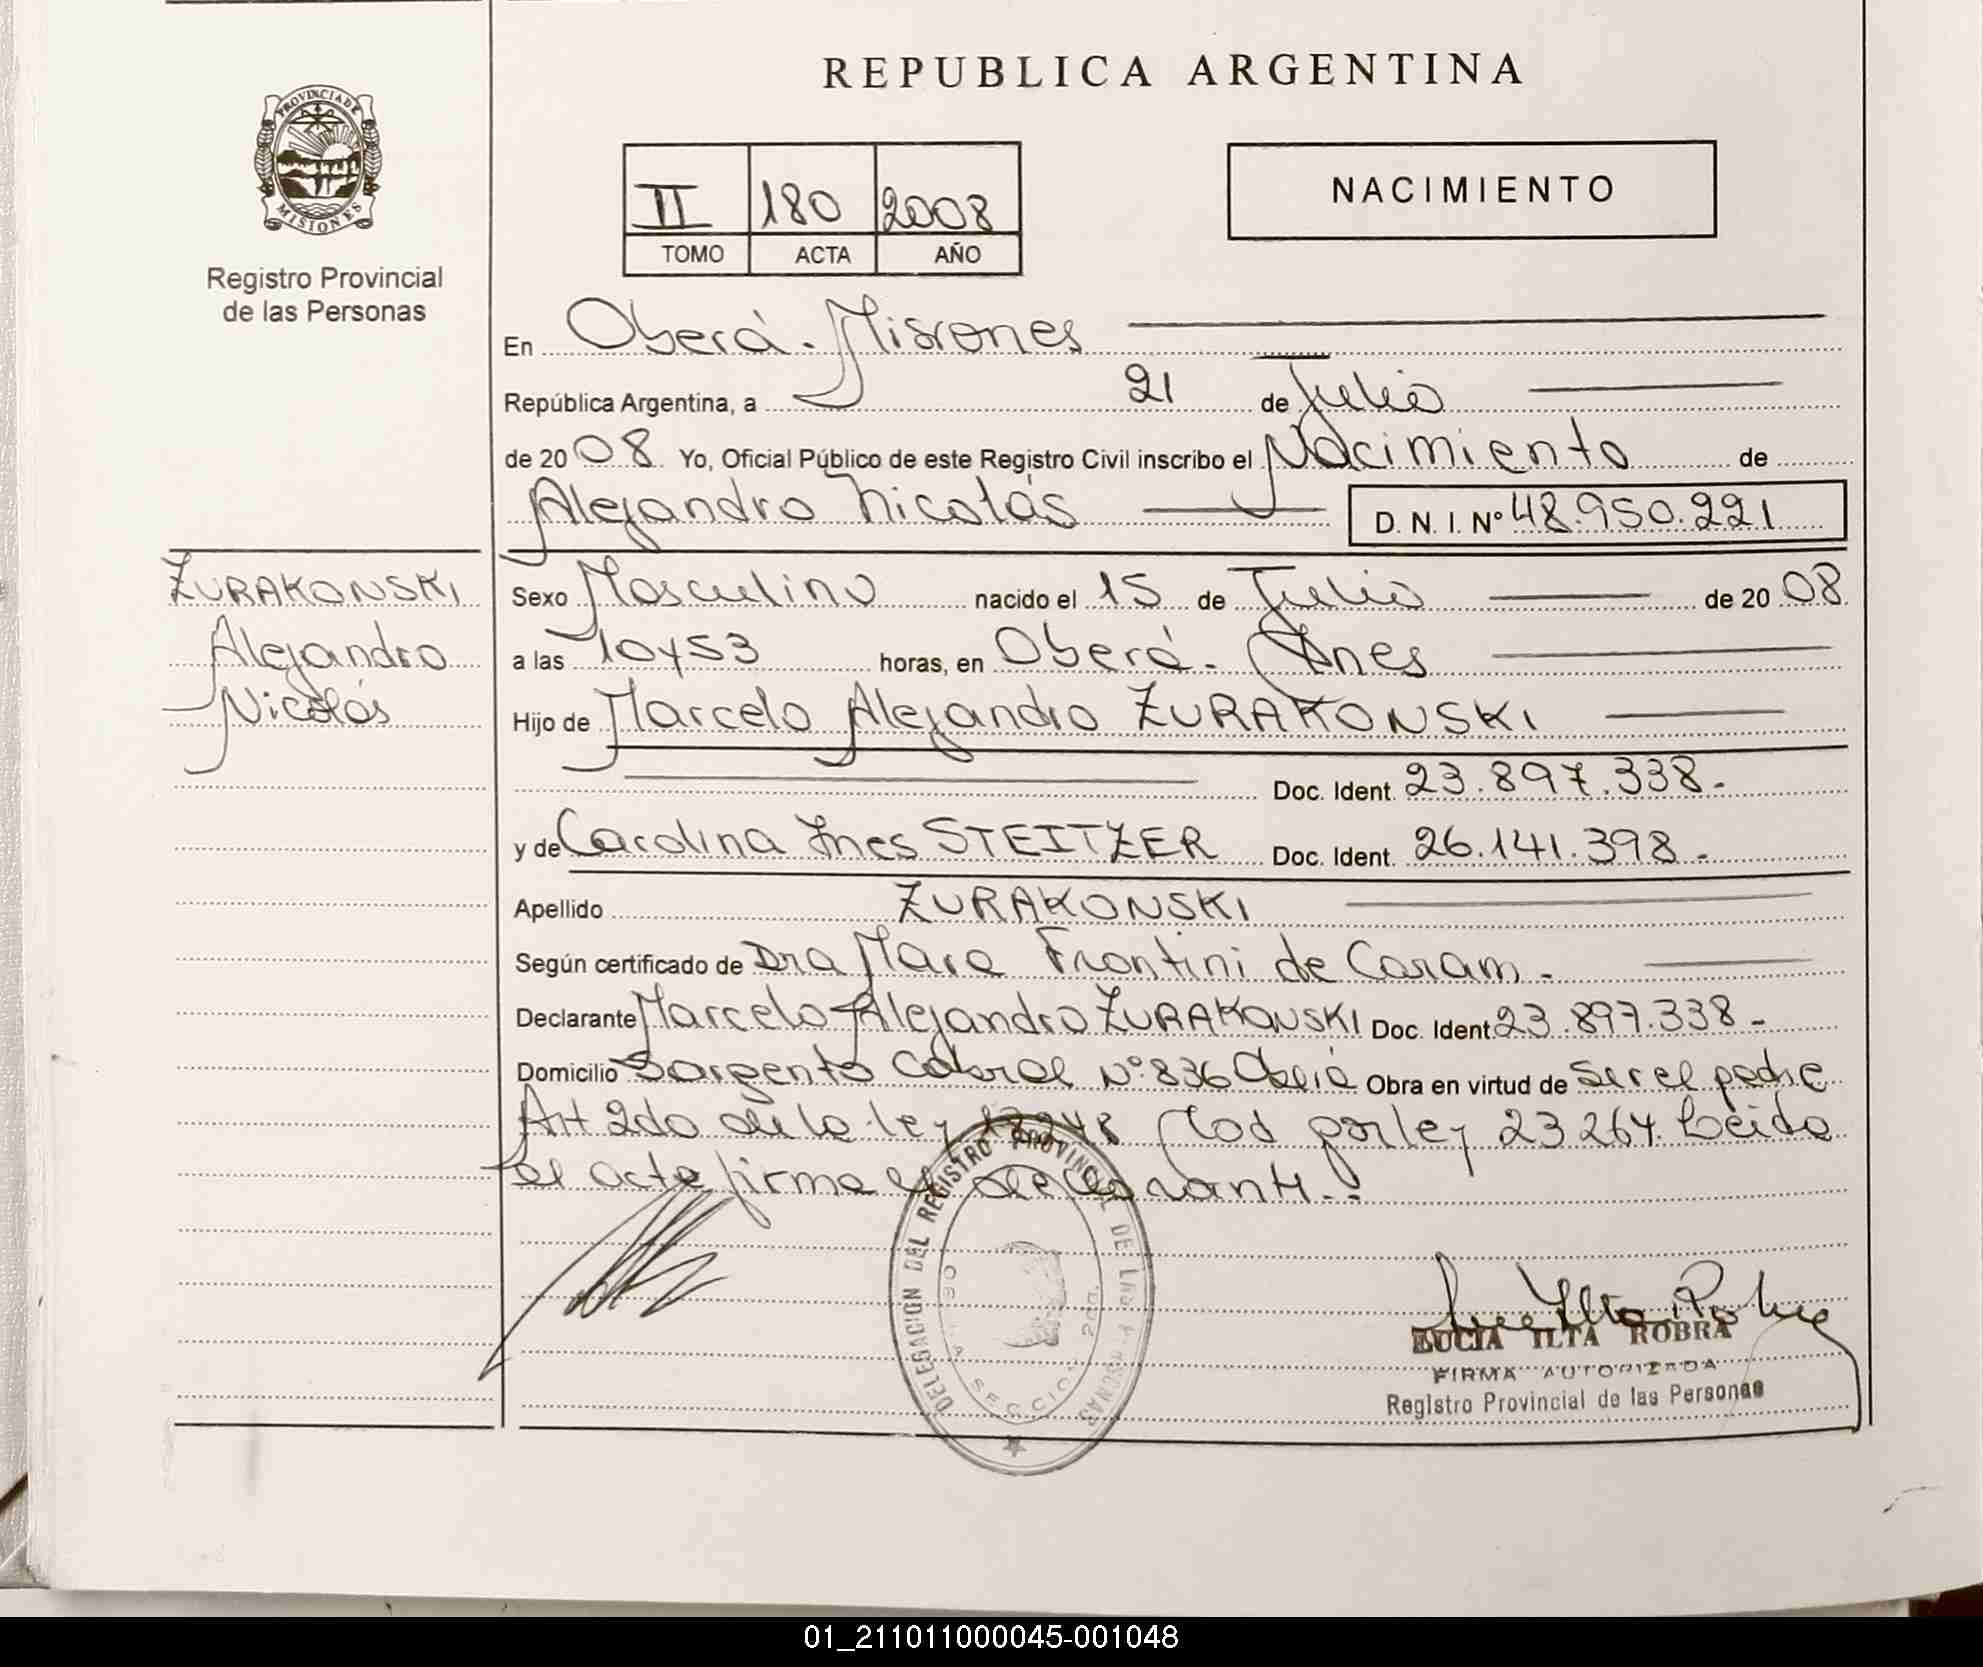 REPUBLICA ARGENTINA
PROVINCIA DE
MISIONES
Registro Provincial
de las Personas
II 180 2008
TOMO ACTA AÑO
NACIMIENTO
En Oberá. Misiones
República Argentina, a 21 de Julio
de 2008 Yo, Oficial Público de este Registro Civil inscribo el Nacimiento de
Alejandro Nicolás D. N. I. Nº 48.950.221
ZURAKONSKI
Alejandro
Nicolás
Sexo Masculino nacido el 15 de Julio de 2008
a las 10y53 horas, en Oberá. Mnes
Hijo de Marcelo Alejandro ZURAKONSKI
Doc. Ident. 23.897.338.-
y de Carolina Ines STEITZER Doc. Ident. 26.141.398.-
Apellido ZURAKONSKI
Según certificado de Dra Mara Frontini de Caram.-
Declarante Marcelo Alejandro ZURAKOUSKI Doc. Ident 23.897.338-
Domicilio Sargento Cabral Nº 836 Oberá Obra en virtud de Ser el padre
Art 2do de la ley 18248 Mod por ley 23264. Leida
el acta firma el declarante.:
DELEGACION DEL REGISTRO PROVINCIAL DE LAS PERSONAS
OBERA SECCION 2da.
LUCIA ILTA ROBRA
FIRMA AUTORIZADA
Registro Provincial de las Personas
01_211011000045-001048